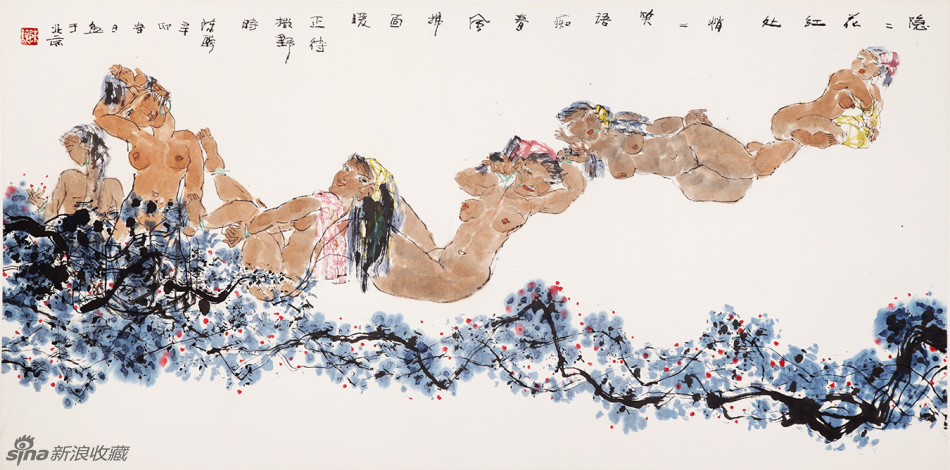 隐二花红处悄二笑语痴春风拂面暖正待撒野时
陈醉辛卯春日画于北京
sina 新浪收藏